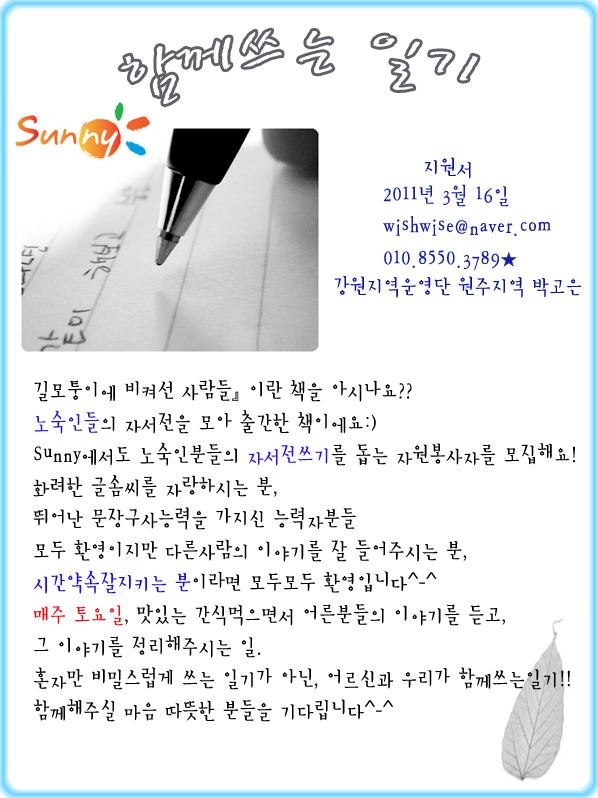 함께쓰는 일기
Sunny
지원서
2011년 3월 16일
wishwise@naver.com
010.8550.3789★
강원지역운영단 원주지역 박고은
길모퉁이에 비켜선 사람들』 이란 책을 아시나요??
노숙인들의 자서전을 모아 출간한 책이에요:)
Sunny에서도 노숙인분들의 자서전쓰기를 돕는 자원봉사자를 모집해요!
화려한 글솜씨를 자랑하시는 분,
뛰어난 문장구사능력을 가지신 능력자분들
모두 환영이지만 다른사람의 이야기를 잘 들어주시는 분,
시간약속잘지키는 분이라면 모두모두 환영입니다^-^
매주 토요일, 맛있는 간식먹으면서 어른분들의 이야기를 듣고,
그 이야기를 정리해주시는 일.
혼자만 비밀스럽게 쓰는 일기가 아닌, 어르신과 우리가 함께쓰는일기!!
함께해주실 마음 따뜻한 분들을 기다립니다^-^